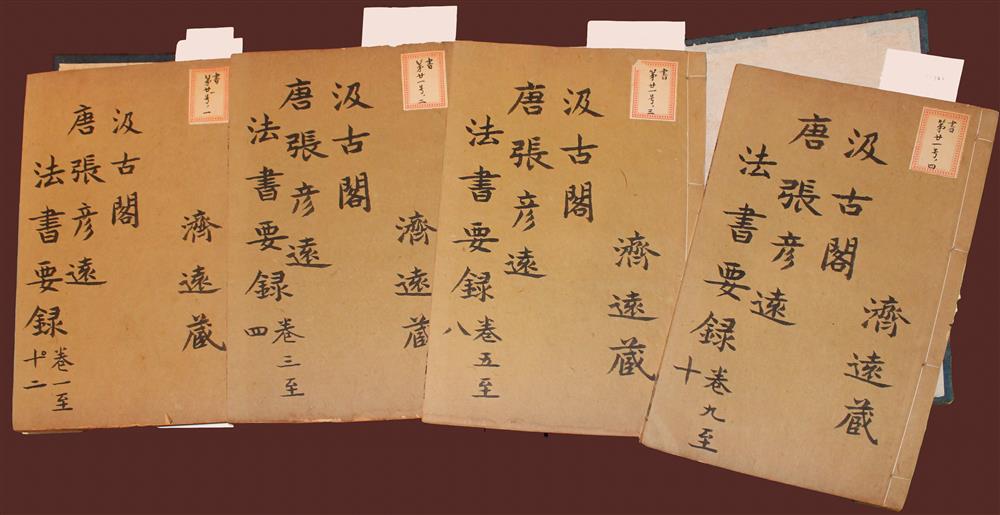 書
第廿一号ノ一
濟遠蔵
汲古閣
唐張彦遠
法書要録
卷一至
十二
書
第廿一号ノ二
濟遠蔵
汲古閣
唐張彦遠
法書要録
卷三至
四
書
第廿一号ノ三
濟遠蔵
汲古閣
唐張彦遠
法書要録
卷五至
八
書
第廿一号ノ四
濟遠蔵
汲古閣
唐張彦遠
法書要録
卷九至
十